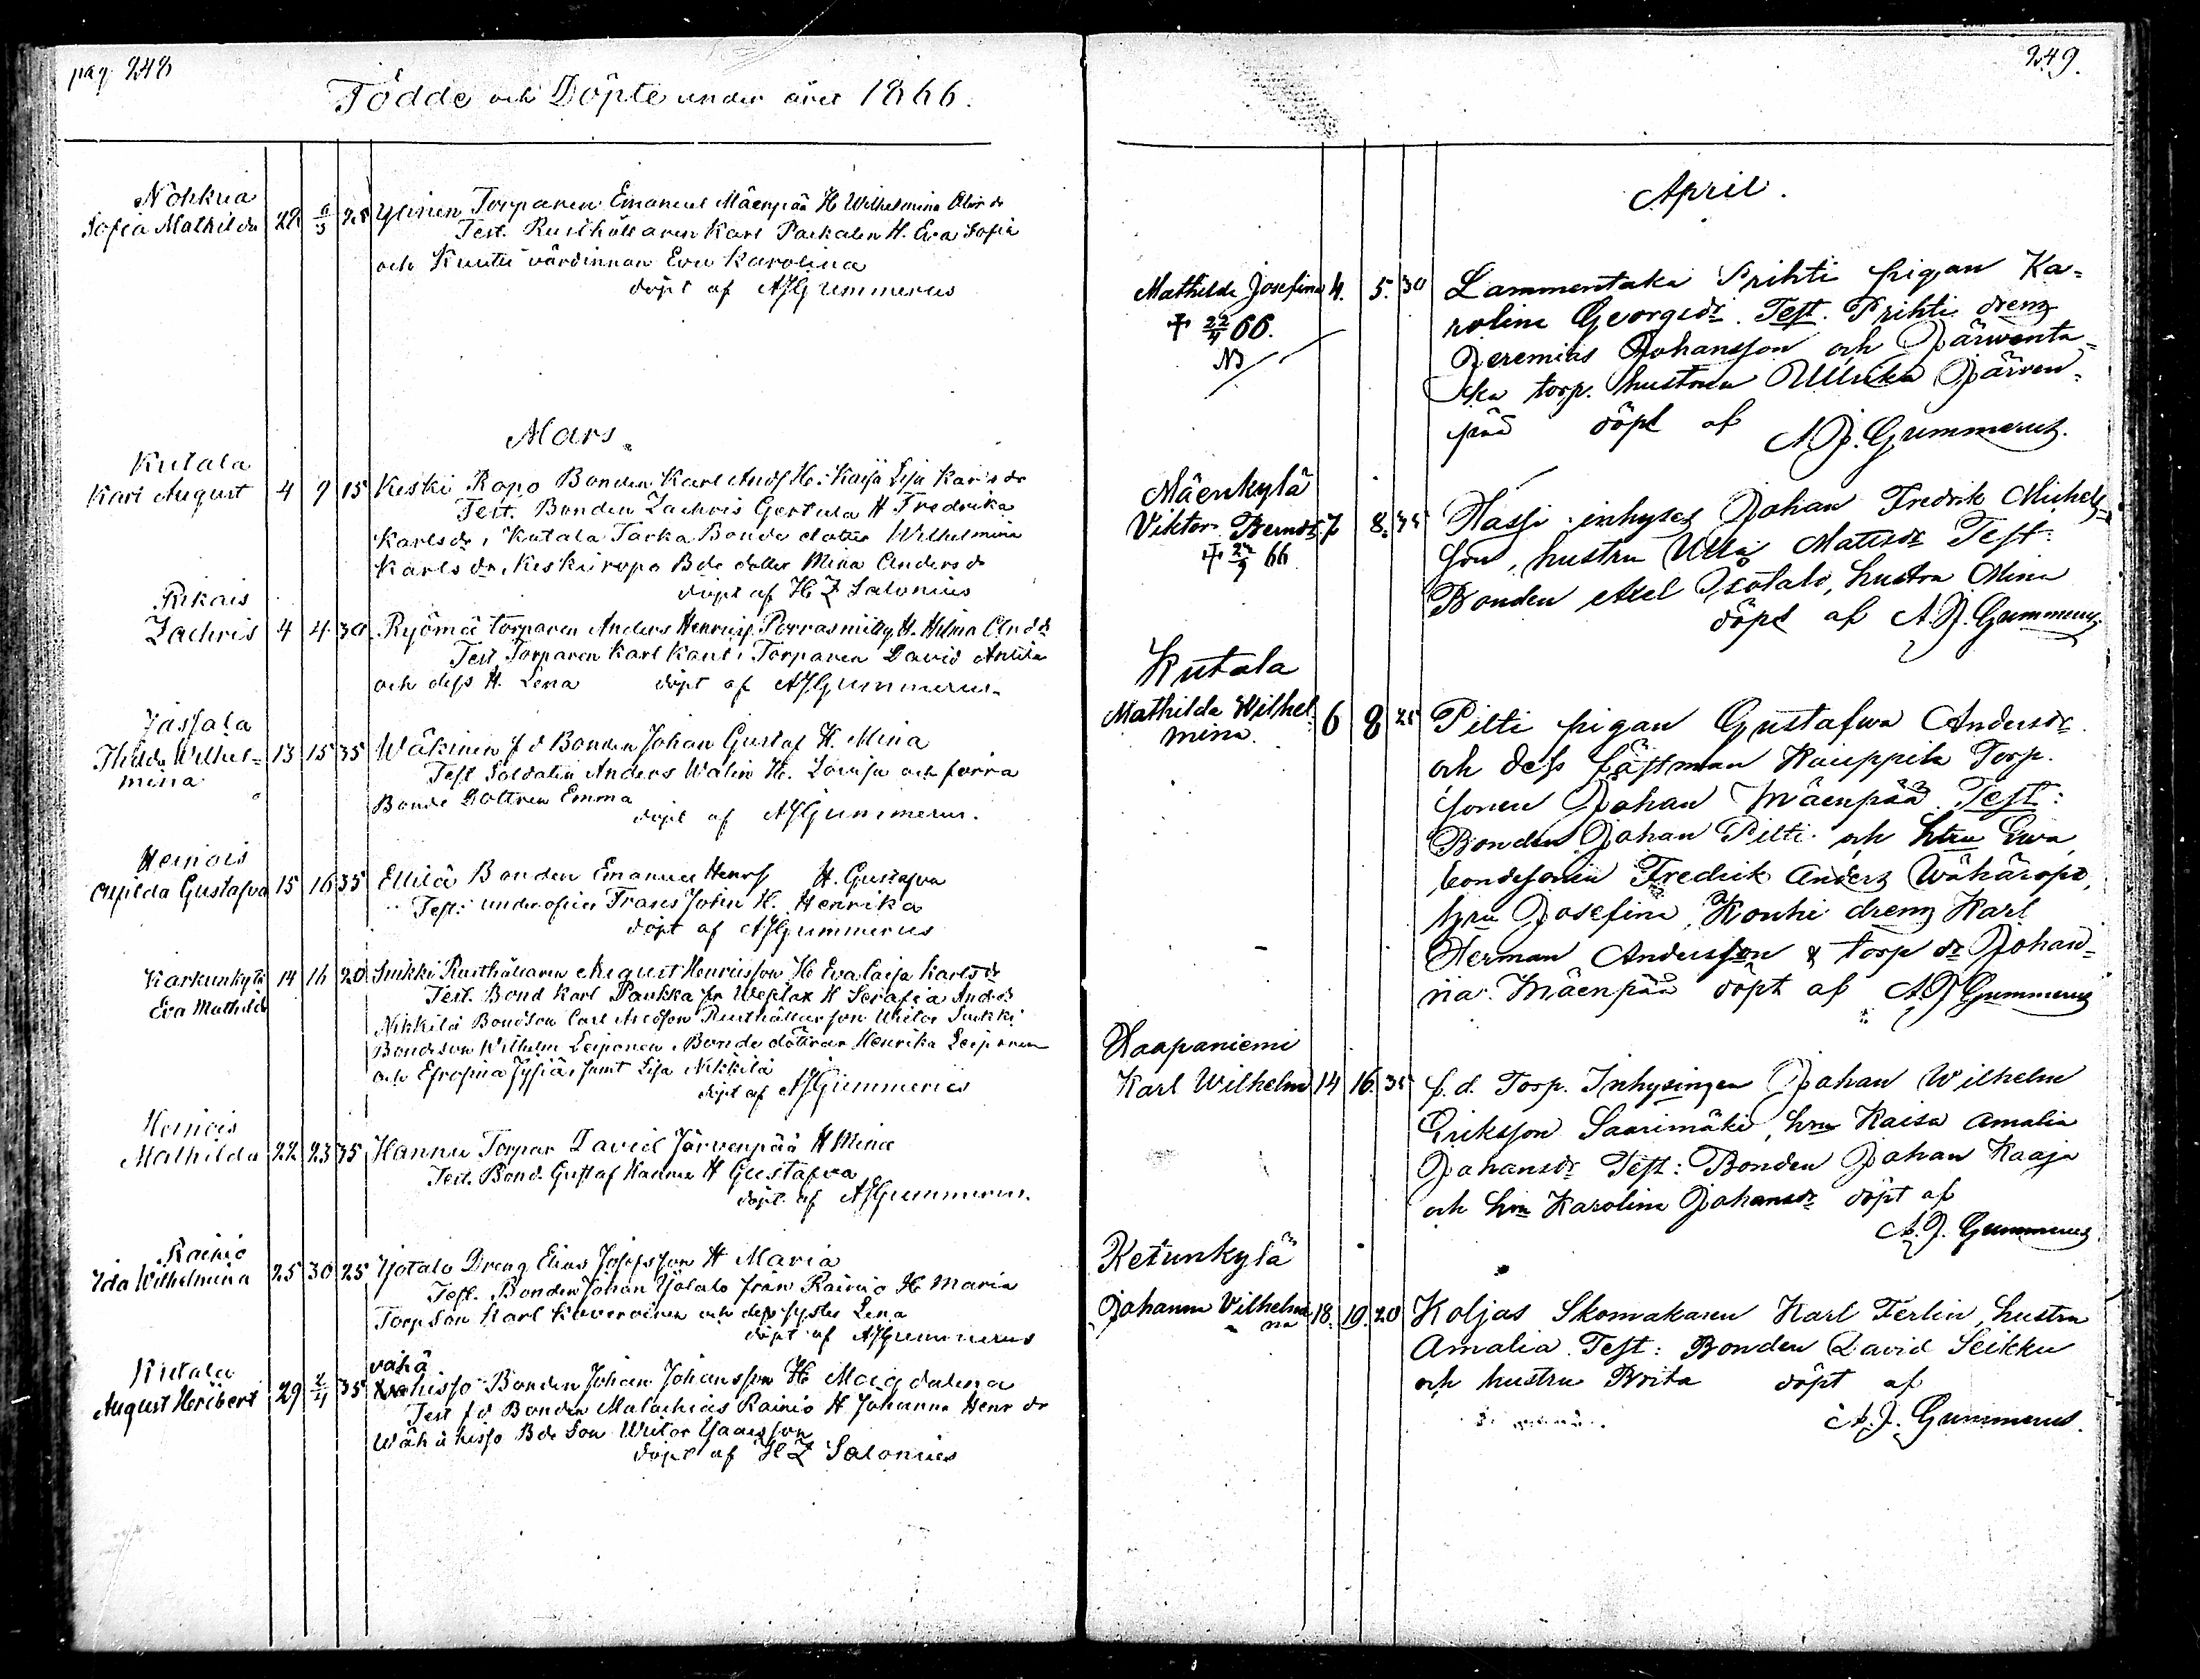 pag. 248
Födde och Döpte under året 1866.
Nohkua
Sofia Mathilda 28 6/3 25 Ylinen Torparen Emanuel Mäenpää H Wilhelmina
Test. Rusthållaren Karl H. Eva Sofia
och värdinnan Eva Karolina
döpt af AJGummerus
Mars.
Kutala
Karl August 4 9 15 Keski Ropo Bonden Karl Ands H: Kaija Lisa Karls dr
Test. Bonden Zachris Gertula H Fredrika
Karlsdr, Kutala Tarka Bonde dotter Wilhelmina
Karls dr, Keskiropo Bde dotter Mina Anders dr
döpt af H Z Salonius
Rikais
Zachris 4 4 30 Ryömä torparen Anders Henriss. H. Helena And dr
Test Torparen Karl Torparen David Anttila
och dess H. Lena döpt af AJGummerus.
Jässala
Hilda Wilhel= 13 15 35 Wäkinen f d Bonden Johan Gustaf H. Mina
mina
Test Soldaten Anders Walin H. Lovisa och förra
Bonde Dottren Emma
döpt af AJGummerus.
Heinois
Gustafva 15 16 35 Ellilä Bonden Emanuel Henrs H. Gustafva
Test: underoficer Frans John H. Henrika
döpt af AJGummerus
Karkunkylä 14 16 20 Suikki Rusthållaren August Henriksson H: Eva Caisa Karls dr
Eva Mathilda
Test. Bond Karl Paukka H Serafia And dr
Nikkilä Bondson Carl Andsson Rusthållarson Wictor Suikki
Bondeson Wilhelm Leiponen, Bonde döttrar Henrika Leiponen
och Efrosina samt Lisa Nikkilä
döpt af AJGummerus
Heinois
Mathilda 22 23 35 Hannu Torpar David Järvenpää H Mina
Test. Bond. Gustaf Hannu H Gustafva
döpt af AJGummerus.
Rainio
Ida Wilhelmina 25 30 25 Yjötalo Dreng Elias Josefsson H Maria
Test. Bonden Johan Yjötalo från Rainio H: Maria
Torp Son Karl och dess syster Lena
döpt af AJGummerus
Kutala
vähä
August Heribert 29 2/4 35 hisso Bonden Johan Johansson H: Magdalena
Test f d Bonden Malachias Rainio H Johanna Henr dr
Wähähisso Bde Son Wictor
döpt af H Z Salonius
249.
April.
Mathilda Josefina 4. 5. 30 Lammentaka Prihti pigan Ka=
rolina Georgsdr. Test. Prihti dreng
✝ 22/4 66.
NB
Jeremias Johansson och Järventa=
ka torp. hustrun Ullrika Järven=
pää döpt af A. J. Gummerus.
Mäenkylä
Viktor Berndt 7 8. 35 Hassi inhyses Johan Fredrik Michels=
✝ 27/9 66
son, hustru Ulla Matsdr Test:
Bonden Axel Isotalo, hustru Mina
döpt af A. J. Gummerus
Kutala
Mathilda Wilhel 6 8 25 Pilti pigan Gustafwa Andersdr
mina.
och dess fästman Kauppila Torp.
sonen Johan Mäenpää. Test:
Bonden Johan Pilti och htru Ewa,
bondsonen Fredrik Anders Wähäropo,
hru Josefina, Kouhi dreng Karl
Herman Andersson & torp dr Johan=
na. Mäenpää döpt af A. J. Gummerus
Haapaniemi
Karl Wilhelm 14 16. 35 f. d. Torp. Inhysingen Johan Wilhelm
Eriksson Saarimäki, hru Kaisa Amalia
Johansdr Test: Bonden Johan Kaaja
och hru Karolina Johansdr döpt af
A. J. Gummerus
Ketunkylä
Johanna Vilhelmi 18. 19. 20 Koljas Skomakaren Karl Ferlin, hustru
na
Amalia. Test: Bonden David Seikku
och hustru Brita döpt af
A. J. Gummerus.